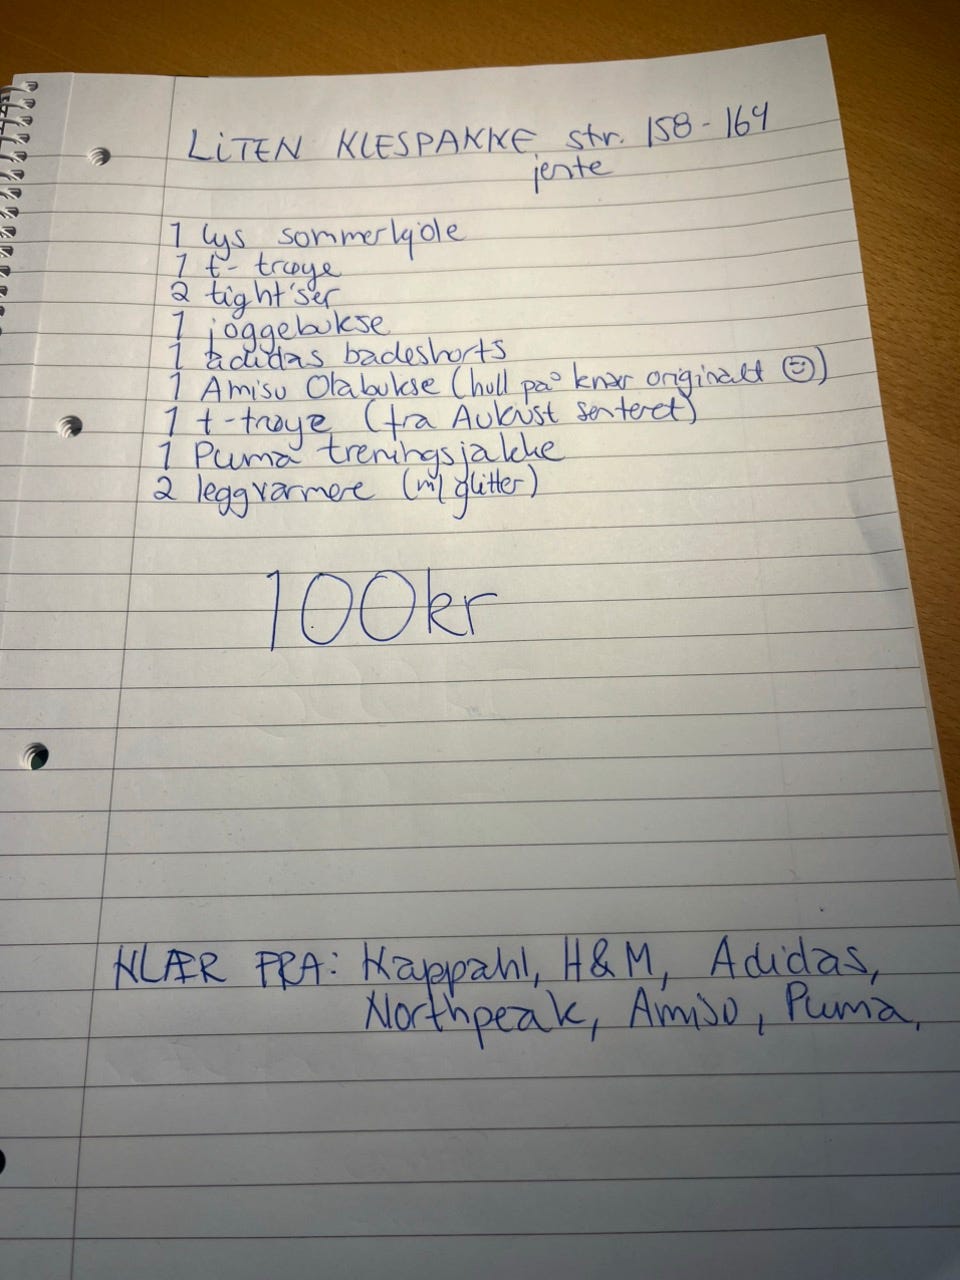 LITEN KLESPAKKE str. 158-164
jente
1 lys sommerkjole
1 t-trøye
2 tight'ser
1 joggebukse
1 adidas badeshorts
1 Amisu Olabukse (hull på knær originalt ☺)
1 t-trøye (fra Aukust senteret)
1 Puma treningsjakke
2 leggvarmere (m/glitter)
100kr
KLÆR FRA: Kappahl, H&M, Adidas,
Northpeak, Amisu, Puma,